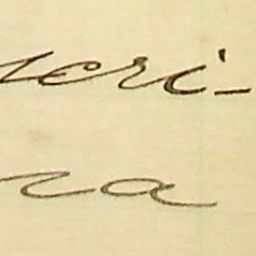 eri-
ra